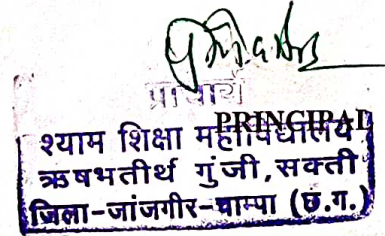 प्राचार्य
PRINCIPAL
श्याम शिक्षा महाविद्यालय
ऋषभतीर्थ गुंजी, सक्ती
जिला-जांजगीर-चाम्पा (छ.ग.)